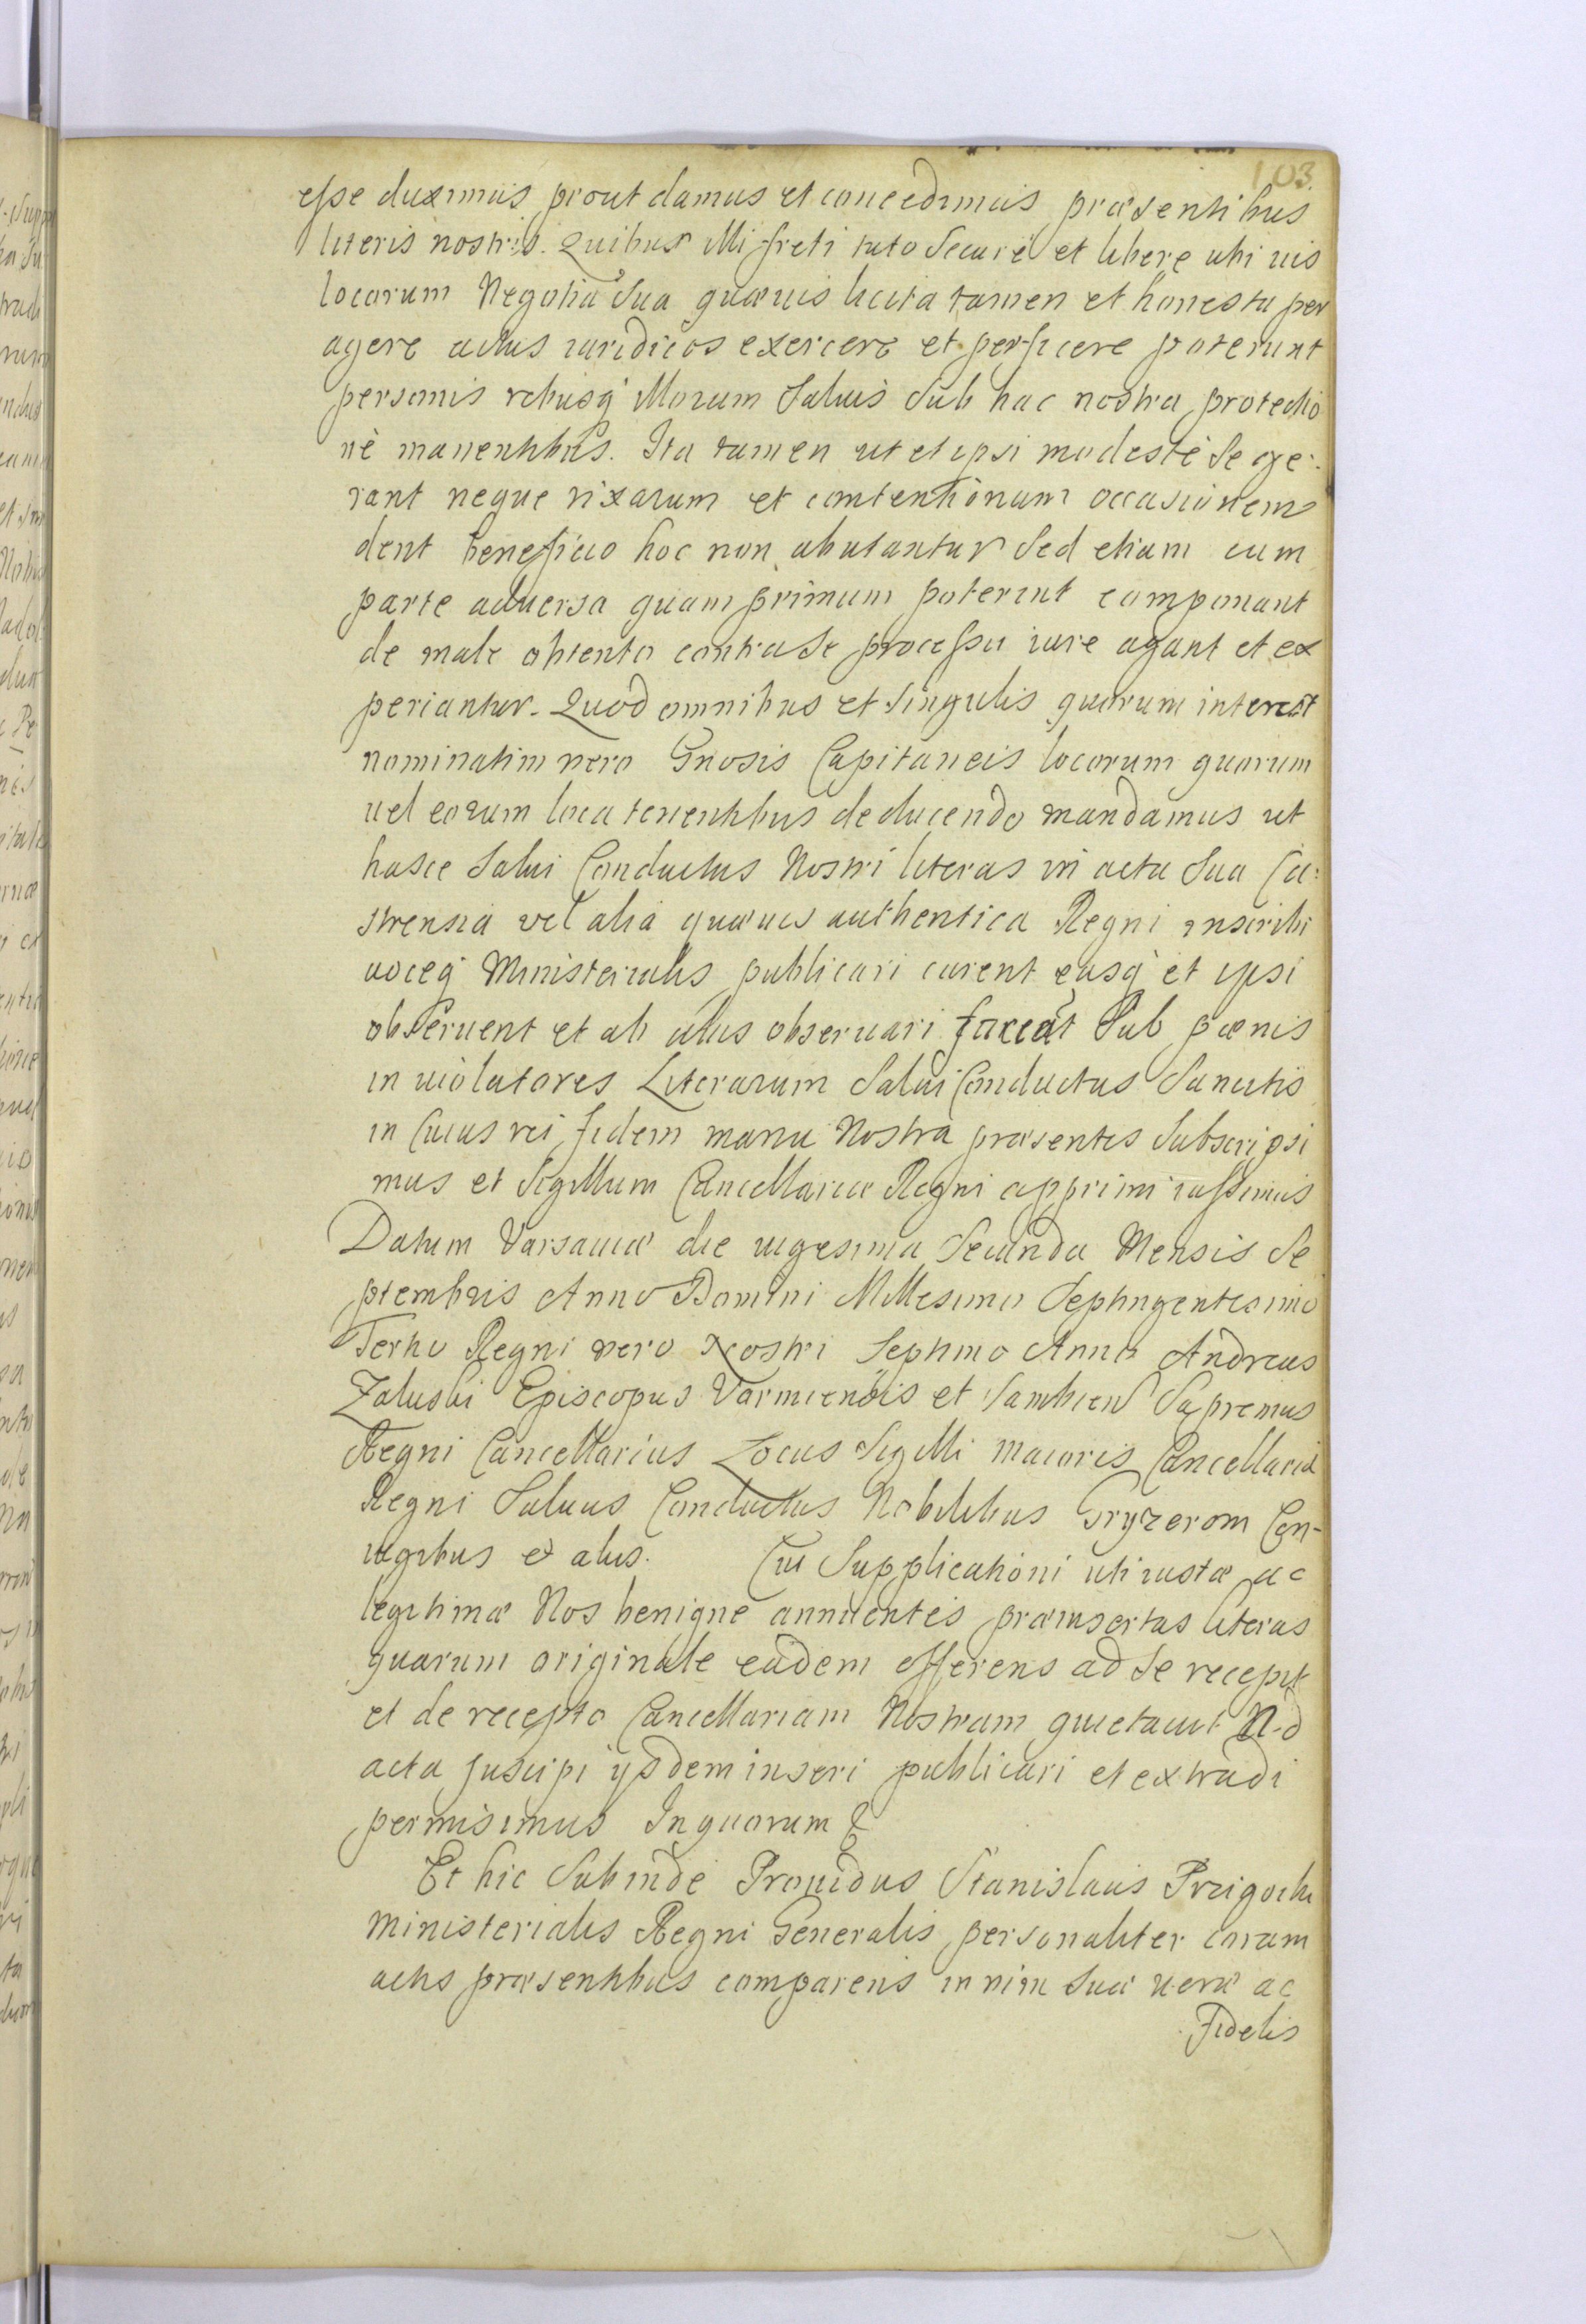 103
esse duximus prout damus et concedimus præsentibus
literis nostris. Quibus illi freti tuto Secure et libere ubi uis
locorum Negotia Sua quæuis licita tamen et honesta per
agere actus iuridicos exercere et perficere poterunt
personis rebusq̓ illorum Saluis Sub hac nostra protectio
ne manentibus. Ita tamen ut et ipsi modeste Se ge:
rant neque rixarum et contentionum occasionem
dent beneficio hoc non abutantur Sed etiam cum
parte aduersa quam primum poterint componant
de male obtento contra Se processu iure agant et ex
periantur. Quod omnibus et Singulis quorum interest
nominatim vero Gnosis Capitaneis locorum quorum
uel eorum loca tenentibus deducendo mandamus ut
hasce Salui Conductus Nostri literas in acta Sua Ca:
strensia vel alia quæuis authentica Regni inscribi
uoceq̓ Ministerialis publicari curent easq̓ et ipsi
obseruent et ab alijs obseruari faciāt Sub pœnis
in uiolatores Literarum Salui Conductus Sancitis
in Cuius rei fidem manu Nostra præsentes Subscripsi
mus et Sigillum Cancellariæ Regni apprimi iussimus
Datum Varsauiæ die uigesima Secunda Mensis Se
ptembris Anno Domini Millesimo Septingentesimo
Tertio Regni vero Nostri Septimo Anno Andreas
Zaluski Episcopus Varmiensis et Sambien̄ Supremus
Regni Cancellarius Locus Sigilli maioris Cancellariæ
Regni Saluus Conductus Nobilibus Gryzerom Con-
iugibus et alijs. Cui Supplicationi uti iustæ ac
legitimæ Nos benigne annuentes præinsertas literas
quarum originale eadem offerens ad Se recepit
et de recepto Cancellariam Nostram quietauit
acta suscipi ijsdem inseri publicari et extradi
permisimus In quorum &
Et hic Subinde Prouidus Stanislaus
ministerialis Regni Generalis personaliter coram
actis præsentibus comparens in vim Suæ ueræ ac
Fidelis